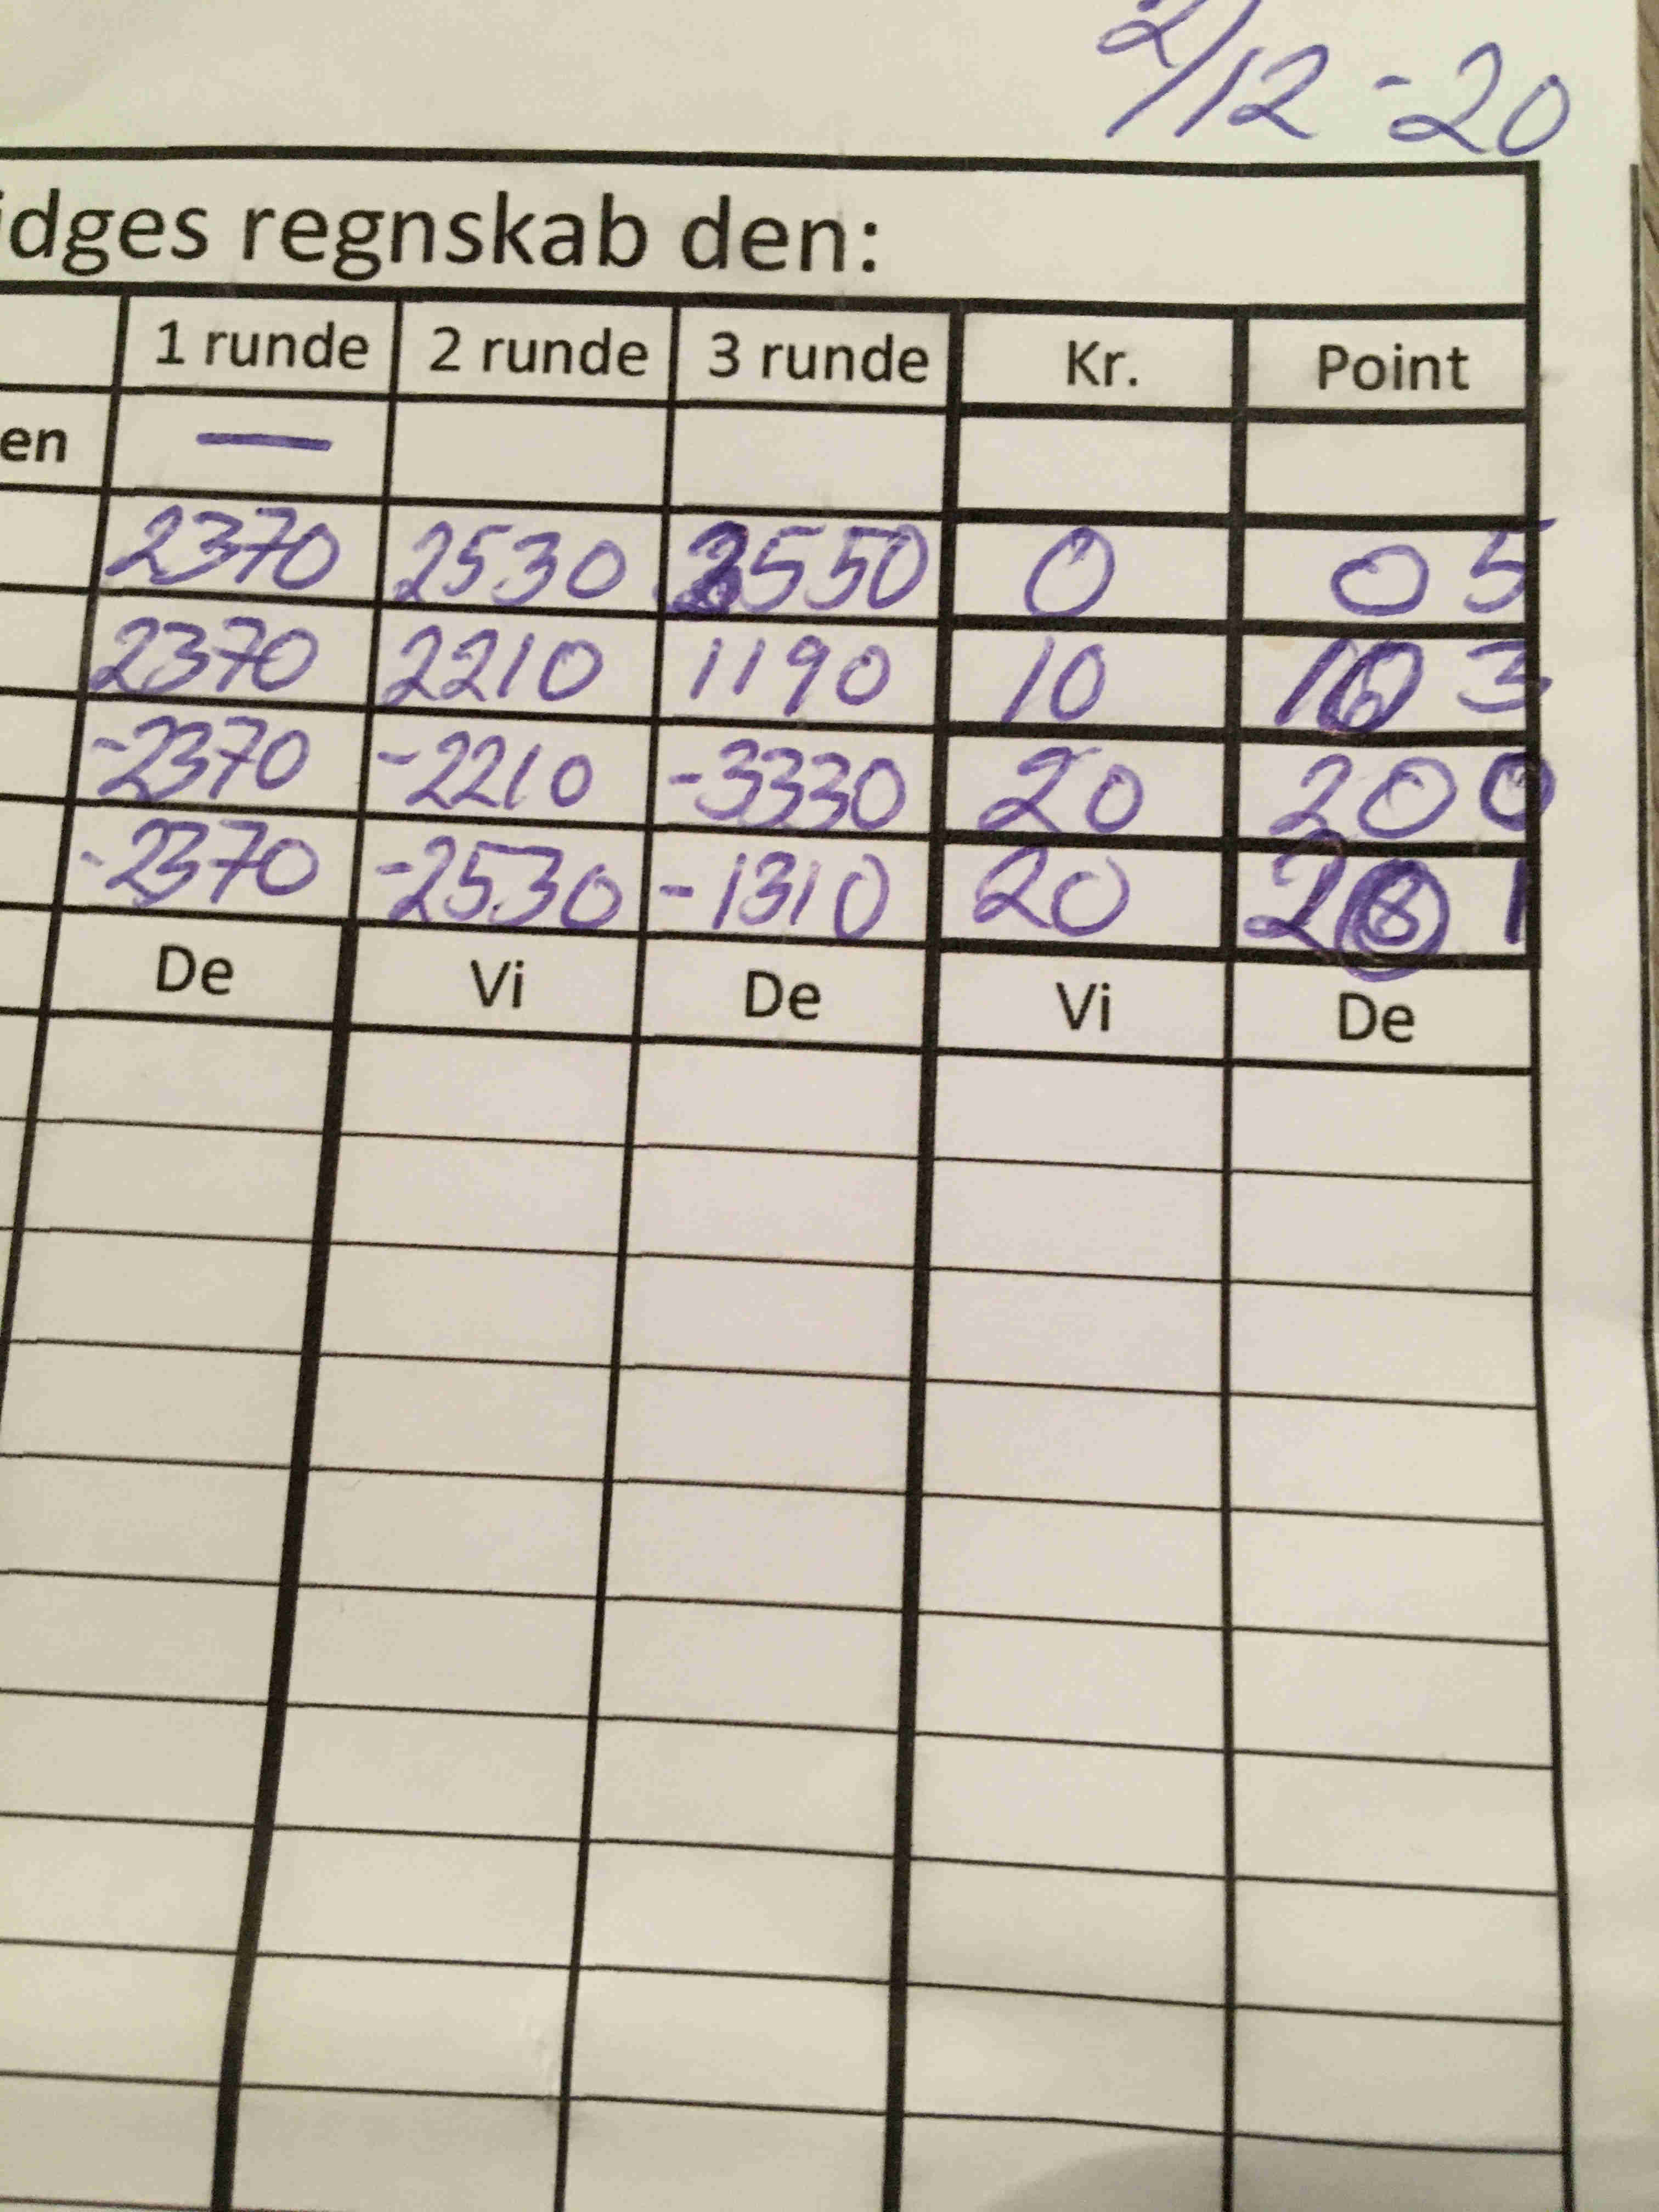 2/12-20
idges regnskab den:
1 runde 2 runde 3 runde Kr. Point
en —
2370 2530 3550 0 0 5
2370 2210 1190 10 10 3
-2370 -2210 -3330 20 20 0
-2370 -2530 -1310 20 1
De Vi De Vi De